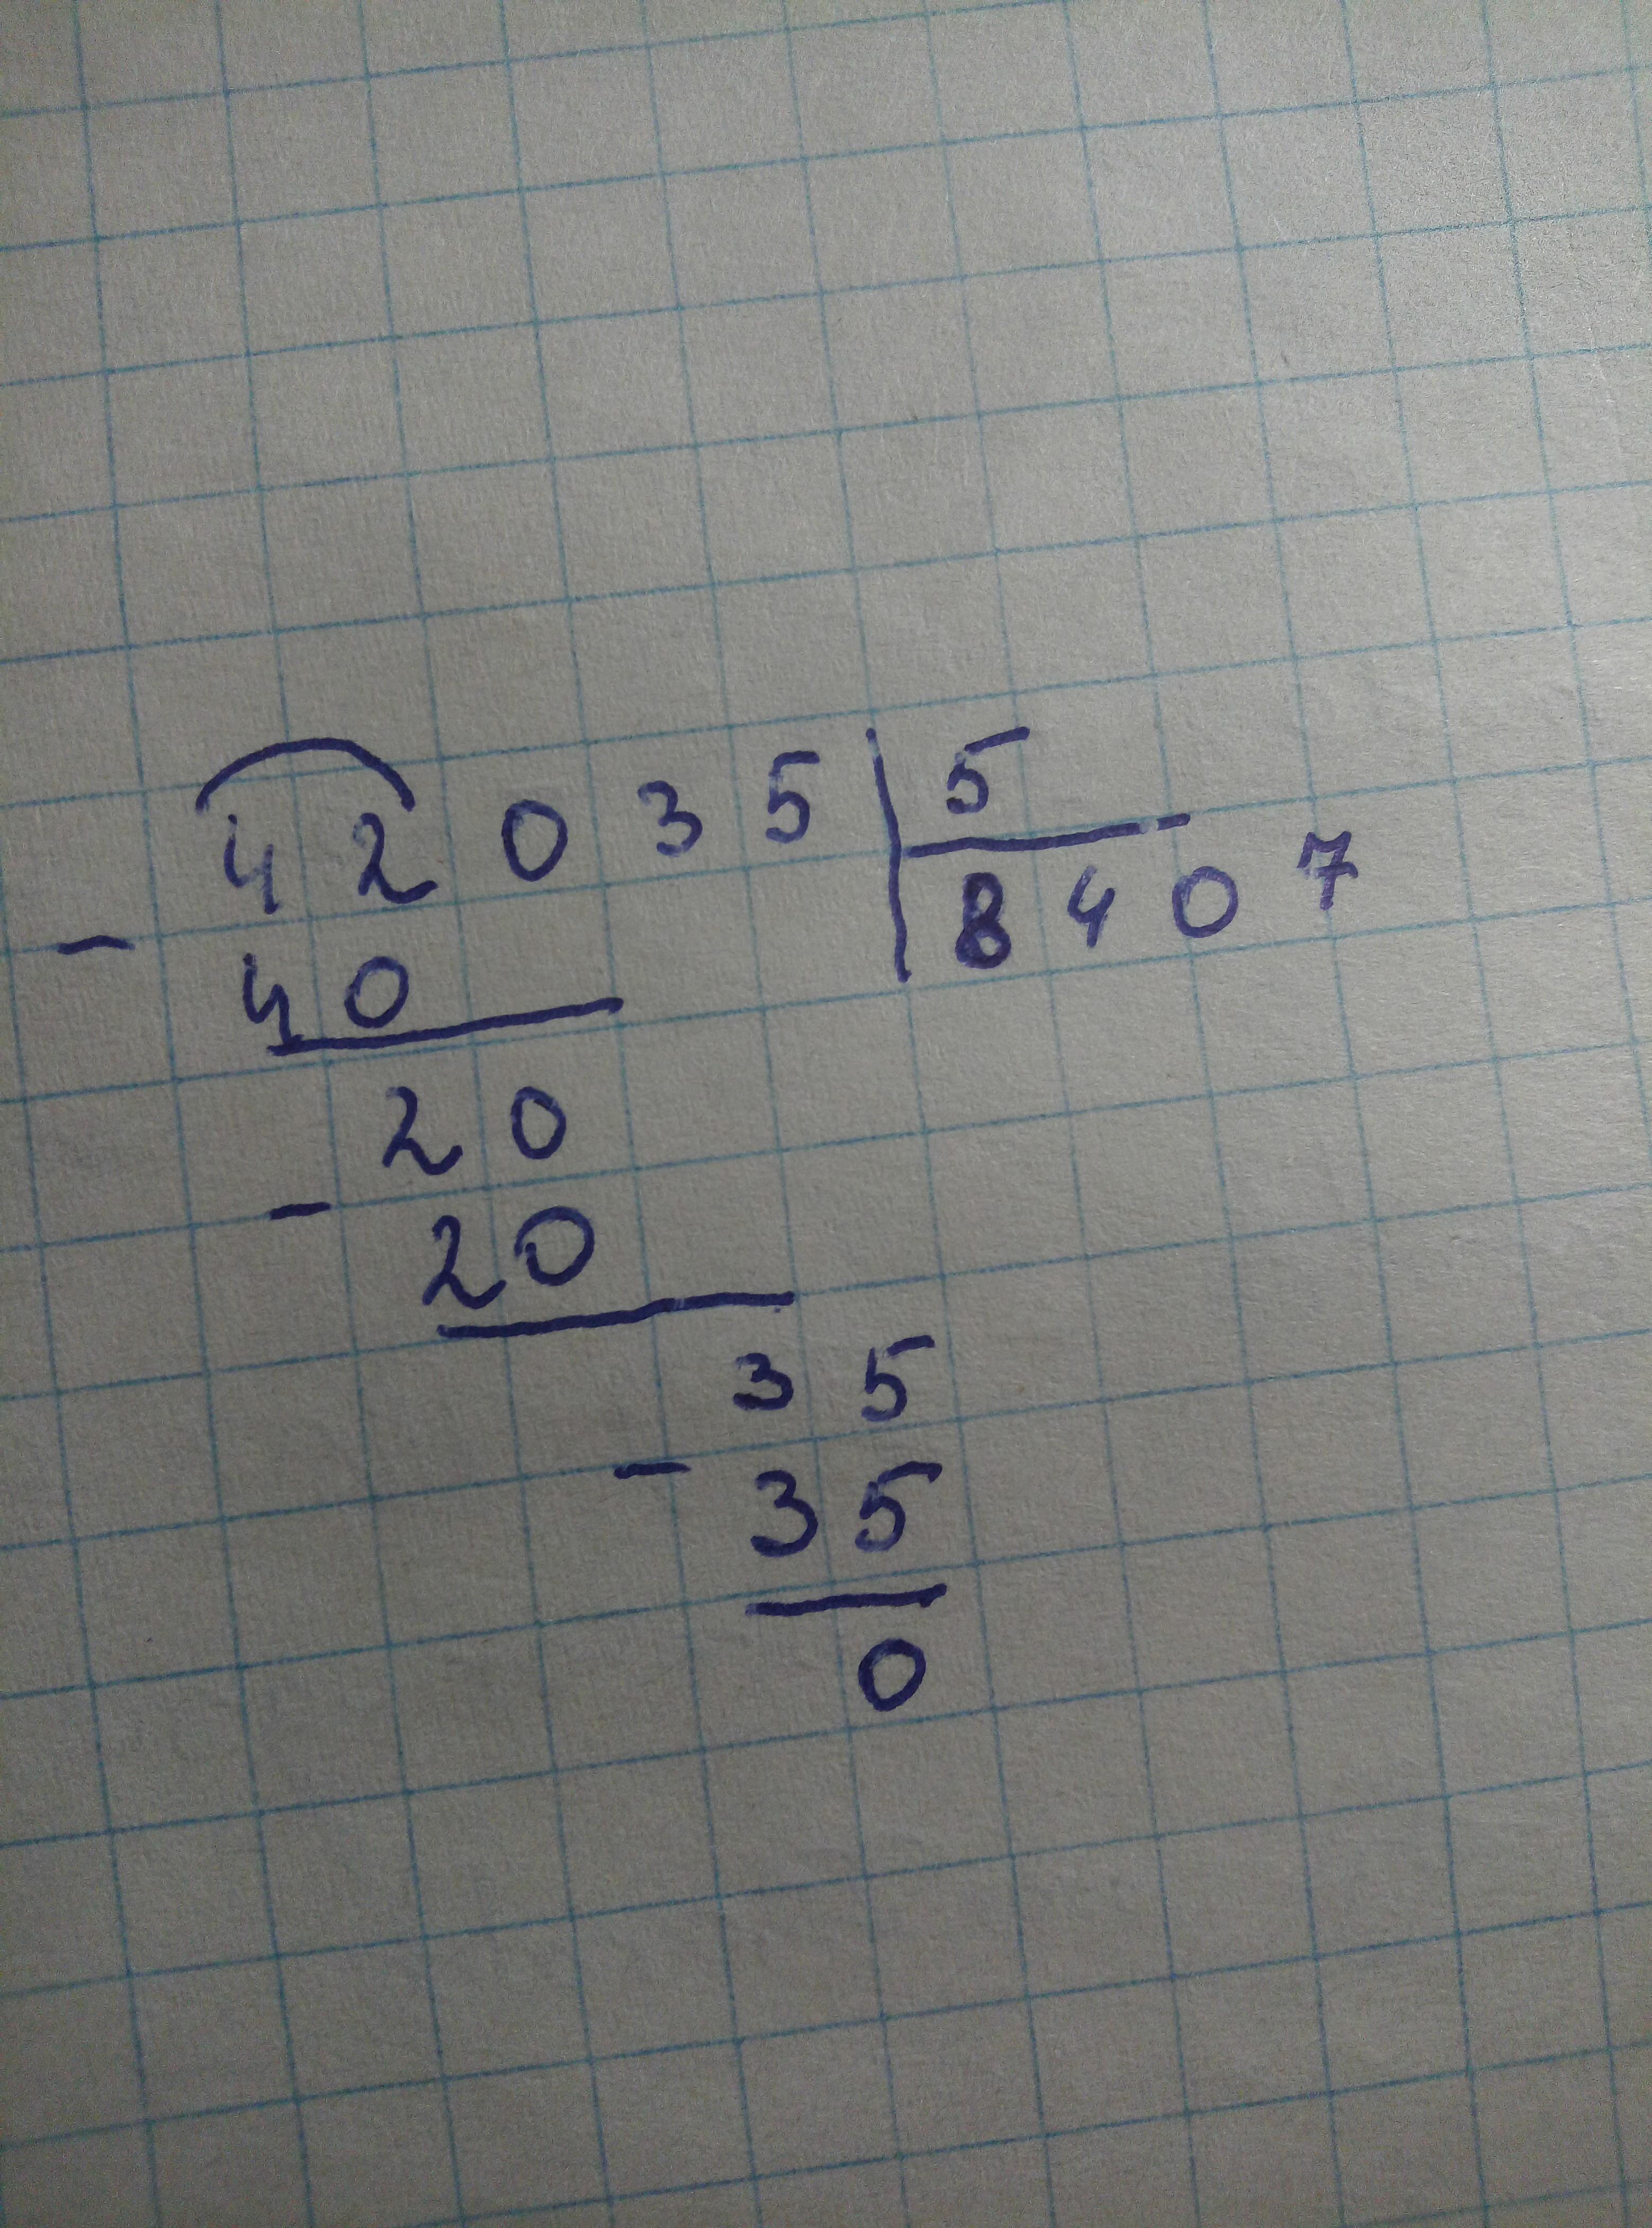 42035 5
8407
- 40
20
- 20
35
- 35
0